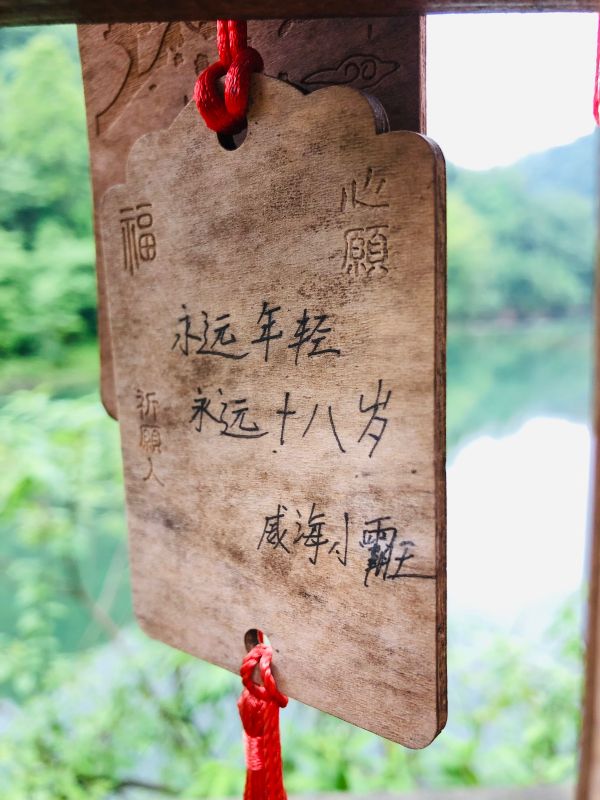 心願
福
永远年轻
永远十八岁
威海小霸王
祈願人